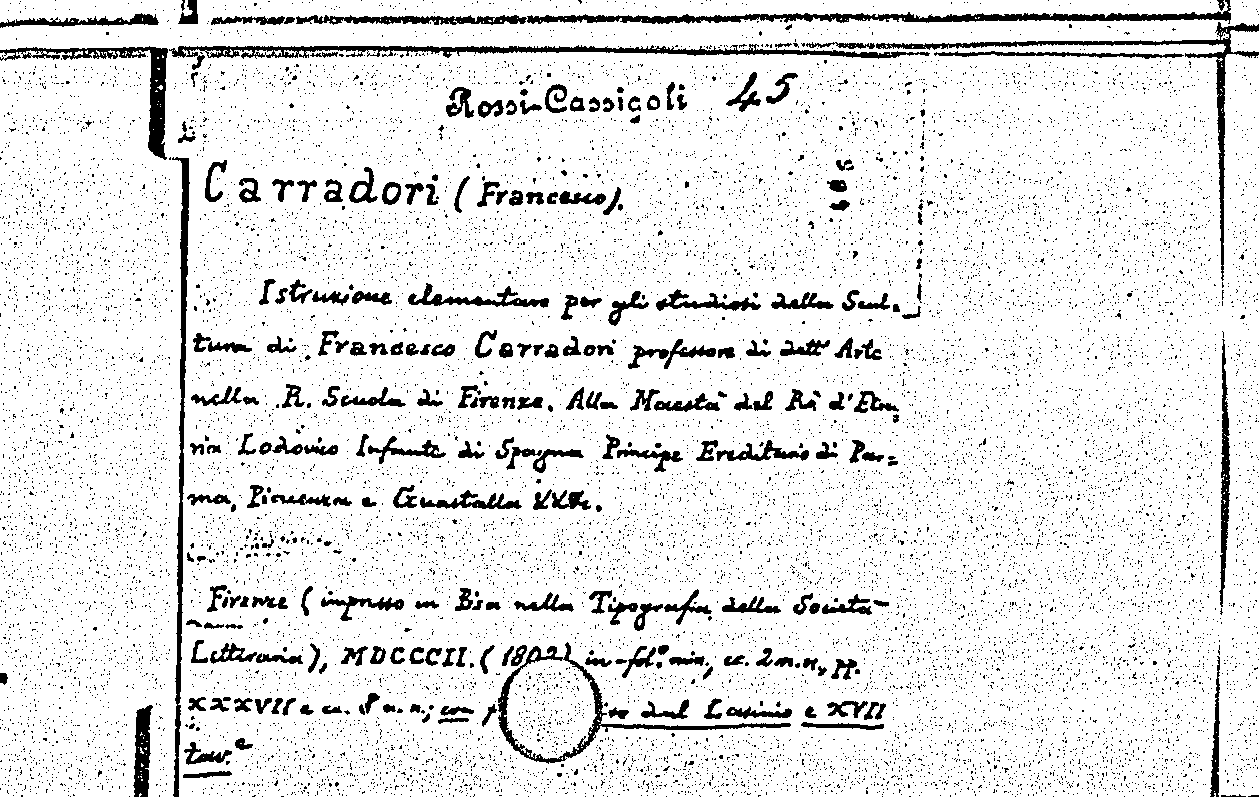 Rossi-Cassigoli 45
Carradori (Francesco).
405
Istruzione elementare per gli studiosi della Scul-
tura di Francesco Carradori professore di dett' Arte
nella R. Scuola di Firenze. Alla Maestà del Rè d'Etru-
ria Lodovico Infante di Spagna Principe Ereditario di Par-
ma, Piacenza e Guastalla &c.
Firenze (impresso in Pisa nella Tipografia della Società
Letteraria), MDCCCII. (1802) in-fol.° min., cc. 2 n.n., pp.
XXXVII e cc. 8 n.n.; con dal Lasinio e XVII
tav.e